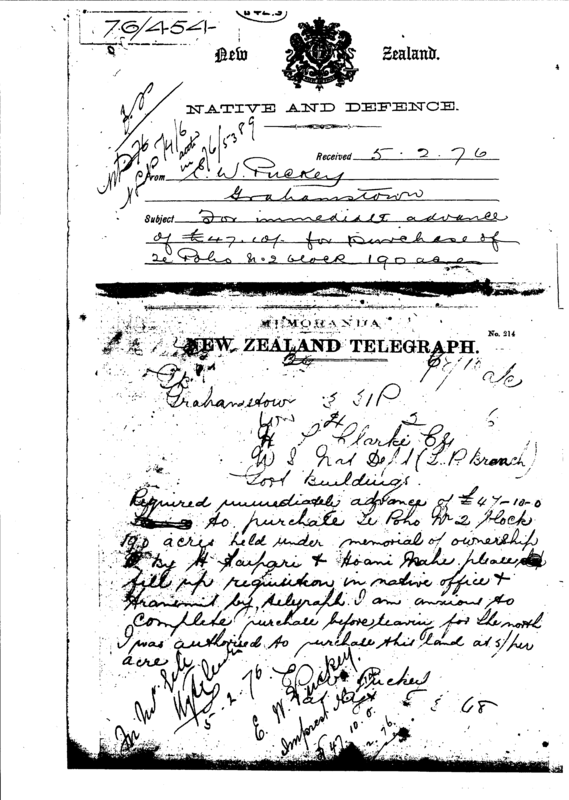 76/454
New Zealand.
NATIVE AND DEFENCE.
Received 5.2.76
From E. W. Puckey
Grahamstown
Subject For immediate advance
of £47.10/- for purchase of
Te Poho No 2 block 190 acres
MEMORANDA
No. 214
NEW ZEALAND TELEGRAPH.
Grahamstown
H T Clarke Esq
Nat Dept (L. P. Branch)
Govt Buildings
Required immediately advance of £47-10-0
to purchase Te Poho No 2 block
190 acres held under memorial of ownership
by H Taipari & Hoani Nahe please
fill up requisition in native office &
transmit by telegraph I am anxious to
complete purchase before leaving for the north
I was authorised to purchase this land at 5/ per
acre
E. W. Puckey
5.2.76
E. W. Puckey
Imprest
£47.10.0
2.76
68